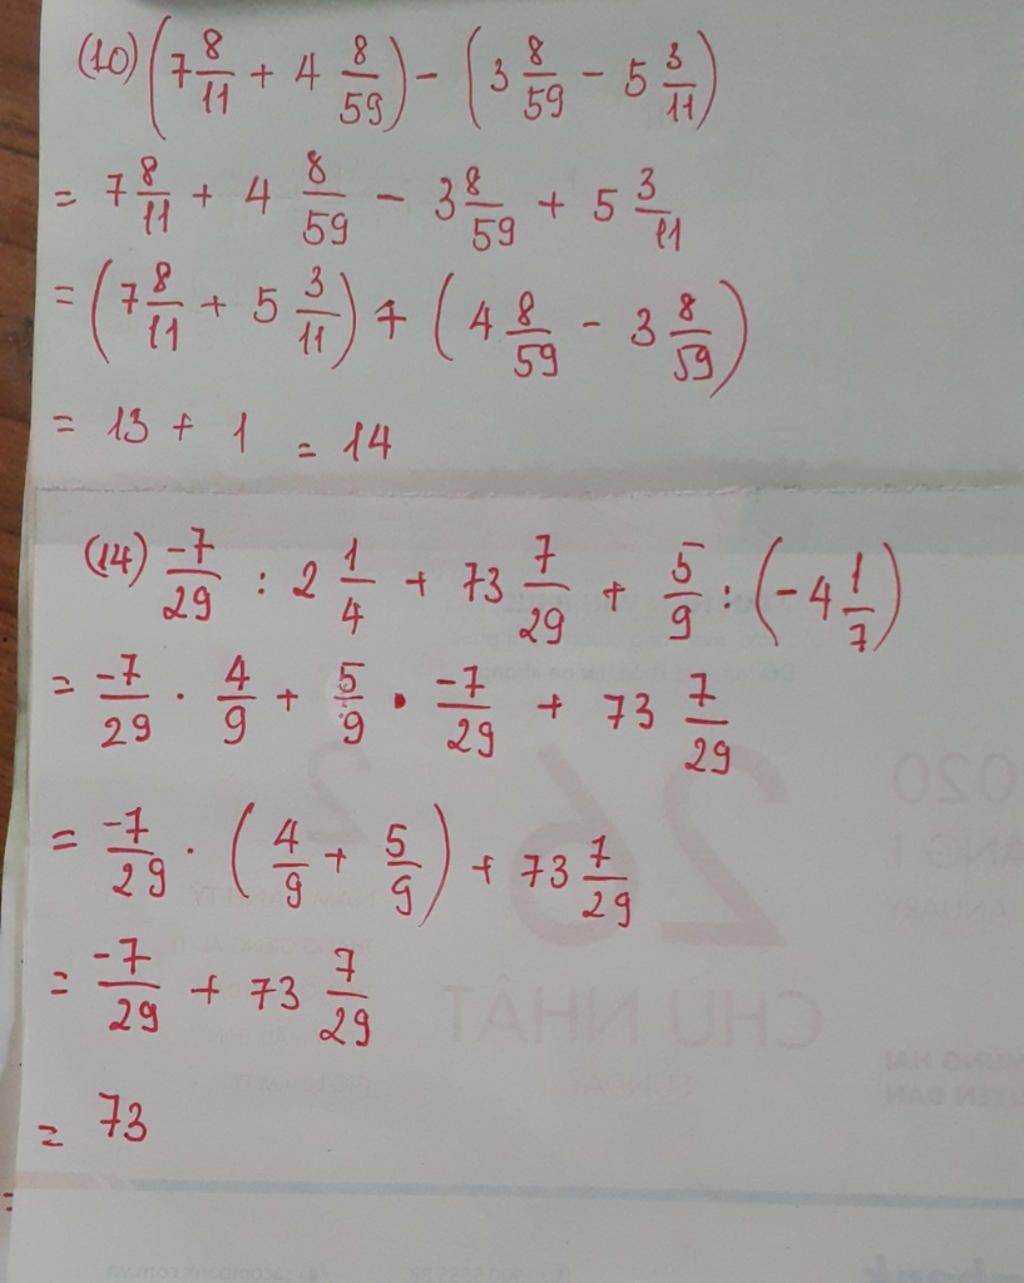 (10) (7 8/11 + 4 8/59) - (3 8/59 - 5 3/11)
= 7 8/11 + 4 8/59 - 3 8/59 + 5 3/11
= (7 8/11 + 5 3/11) + (4 8/59 - 3 8/59)
= 13 + 1 = 14
(14) -7/29 : 2 1/4 + 73 7/29 + 5/9 : (-4 1/7)
= -7/29 . 4/9 + 5/9 . -7/29 + 73 7/29
= -7/29 . (4/9 + 5/9) + 73 7/29
= -7/29 + 73 7/29
= 73
020
26
2
CHỦ NHẬT